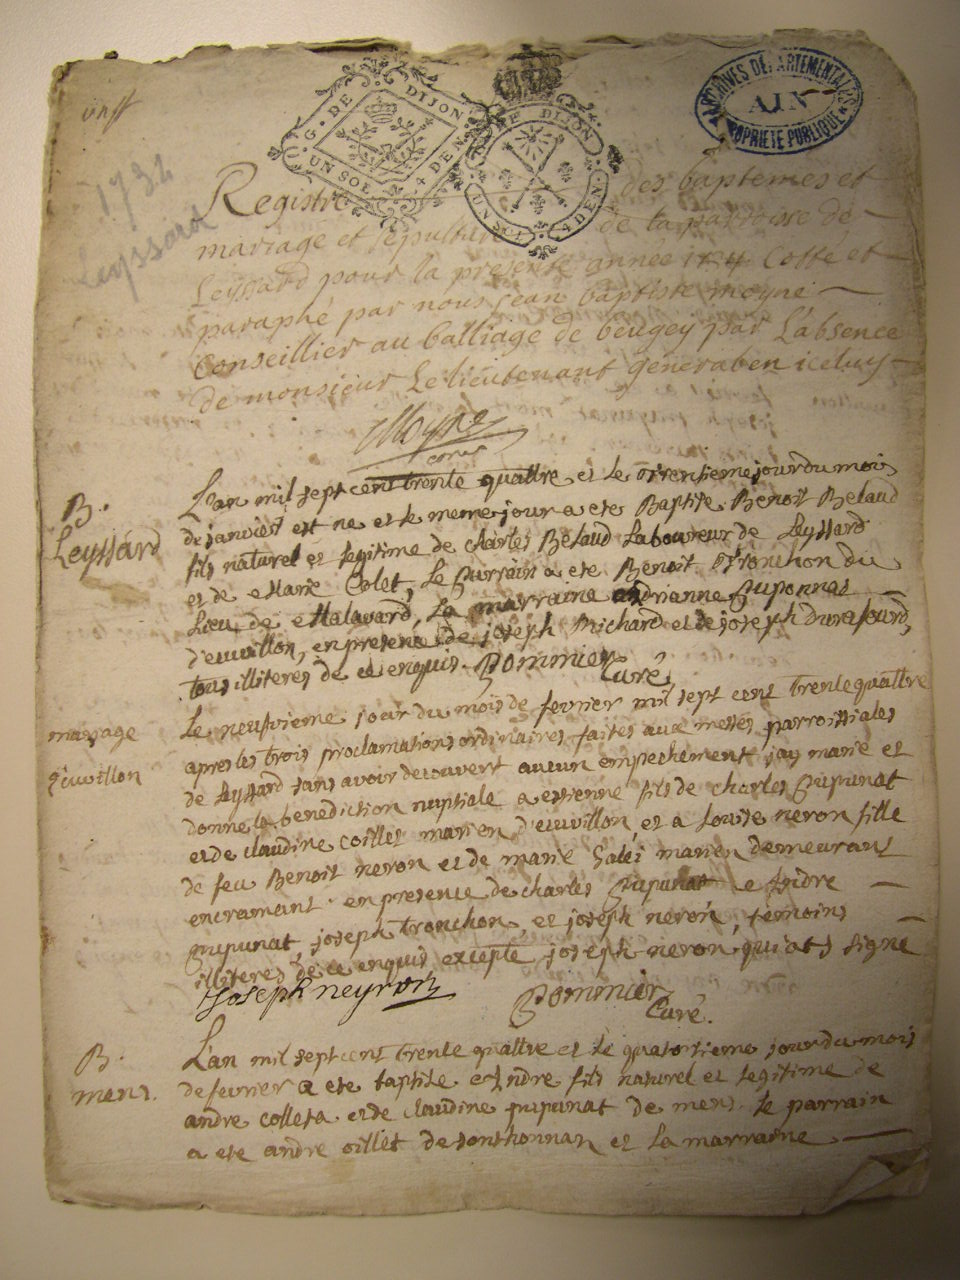 ARCHIVES DEPARTEMENTALES
AIN
PROPRIETE PUBLIQUE
G. DE DIJON
UN SOL 4 DEN.
DE DIJON
UN SOL 4 DEN.
1734
Leyssard
Registre des baptemes et
mariage et sepulture de la parroisse de
Leyssard pour la presente année 1734 Cotté et
paraphé par nous jean baptiste moyne
Conseillier au balliage de beugey par L'absence
de monsieur Le lieutenant general en iceluy
Moyne
B.
Leyssard
L'an mil sept cent trente quattre et le trentieme jour du mois
de janvier est ne et le meme jour a ete Baptise Benoit Belaud
fils naturel et legitime de charles Belaud Laboureur de Leyssard
et de Marie Colet, Le parrain a ete Benoit Tronchon du
Lieu de Malavard, La marraine andrianne Puponnat
d'euvillon, en presence de joseph Michard et de joseph
tous illiteres de ce enquis. Pommier
Curé
mariage
d'euvillon
Le neufvieme jour du mois de fevrier mil sept cent trente quattre
apres les trois proclamations ordinaires faites aux messes parroissiales
de Leyssard sans avoir decouvert aucun empechement jay marié et
donne la benediction nuptiale a estienne fils de charles Pupunat
et de claudine coillet marien d'euvillon, et a Louise neron fille
de feu Benoit neron et de marie Galei marien demeurant
en cramant. en presence de charles Pupunat andre
Pupunat joseph tronchon, et joseph neron, temoins
illiteres de ce enquis excepte joseph neron qui a signe
Joseph neyron Pommier
Curé.
B.
mens.
L'an mil sept cent trente quattre et le quatorsieme jour du mois
de fevrier a ete baptise Andre fils naturel et legitime de
andre colleta et de claudine pupunat de mens. le parrain
a ete andre oillet de sonthonnan et La marraine